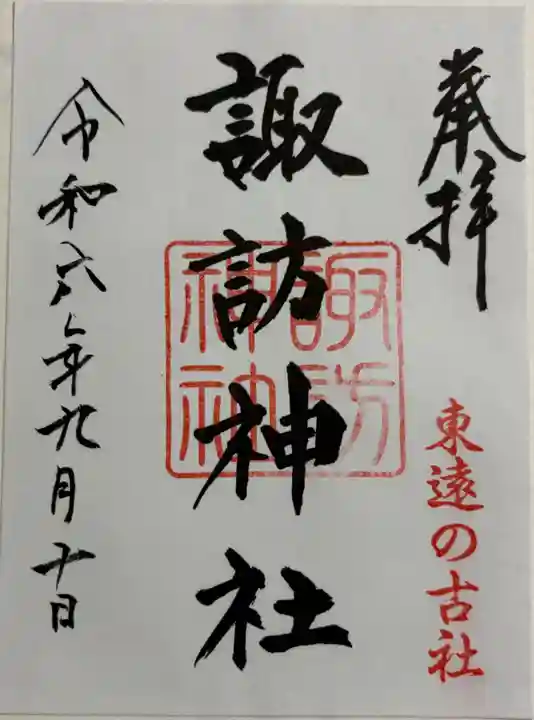 奉拝
東遠の古社
諏訪神社
諏訪
神社
令和六年九月十日